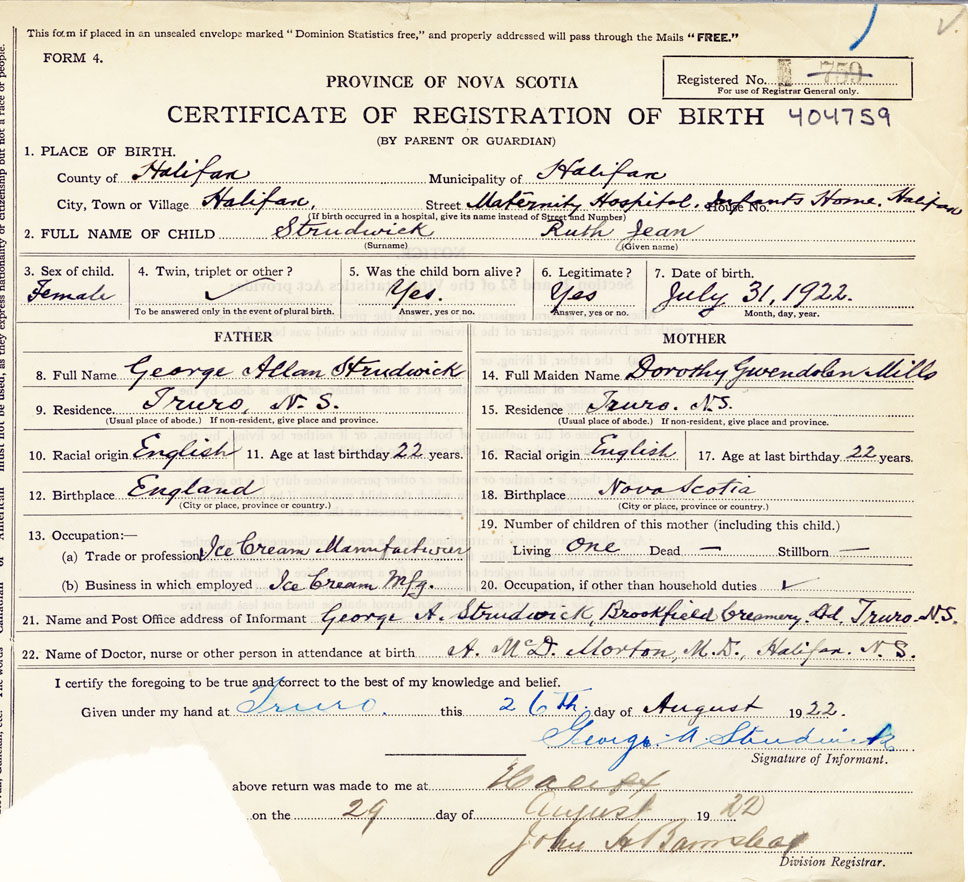 This form if placed in an unsealed envelope marked "Dominion Statistics free," and properly addressed will pass through the Mails "FREE."
FORM 4.
PROVINCE OF NOVA SCOTIA
Registered No. 759
For use of Registrar General only.
CERTIFICATE OF REGISTRATION OF BIRTH 404759
(BY PARENT OR GUARDIAN)
1. PLACE OF BIRTH.
County of Halifax Municipality of Halifax
City, Town or Village Halifax. Street Maternity Hospital. Infants Home. Halifax House No.
(If birth occurred in a hospital, give its name instead of Street and Number)
2. FULL NAME OF CHILD Strudwick Ruth Jean
(Surname) (Given name)
3. Sex of child. 4. Twin, triplet or other? 5. Was the child born alive? 6. Legitimate? 7. Date of birth.
Female ✓ Yes. Yes July 31, 1922.
To be answered only in the event of plural birth. Answer, yes or no. Answer, yes or no. Month, day, year.
FATHER MOTHER
8. Full Name George Allan Strudwick 14. Full Maiden Name Dorothy Gwendolen Mills
9. Residence. Truro, N.S. 15. Residence Truro. N.S.
(Usual place of abode.) If non-resident, give place and province. (Usual place of abode.) If non-resident, give place and province.
10. Racial origin English 11. Age at last birthday 22 years. 16. Racial origin English 17. Age at last birthday 22 years.
12. Birthplace England 18. Birthplace Nova Scotia
(City or place, province or country.) (City or place, province or country.)
13. Occupation:— 19. Number of children of this mother (including this child.)
(a) Trade or profession Ice Cream Manufacturer Living one Dead — Stillborn —
(b) Business in which employed Ice Cream Mfg. 20. Occupation, if other than household duties ✓
21. Name and Post Office address of Informant George A. Strudwick, Brookfield Creamery. Ltd, Truro. N.S.
22. Name of Doctor, nurse or other person in attendance at birth A. McD. Morton, M.D., Halifax. N.S.
I certify the foregoing to be true and correct to the best of my knowledge and belief.
Given under my hand at Truro. this 26th. day of August 1922.
George A Strudwick
Signature of Informant.
above return was made to me at Halifax
on the 29 day of August 1922
John A Barnstead
Division Registrar.